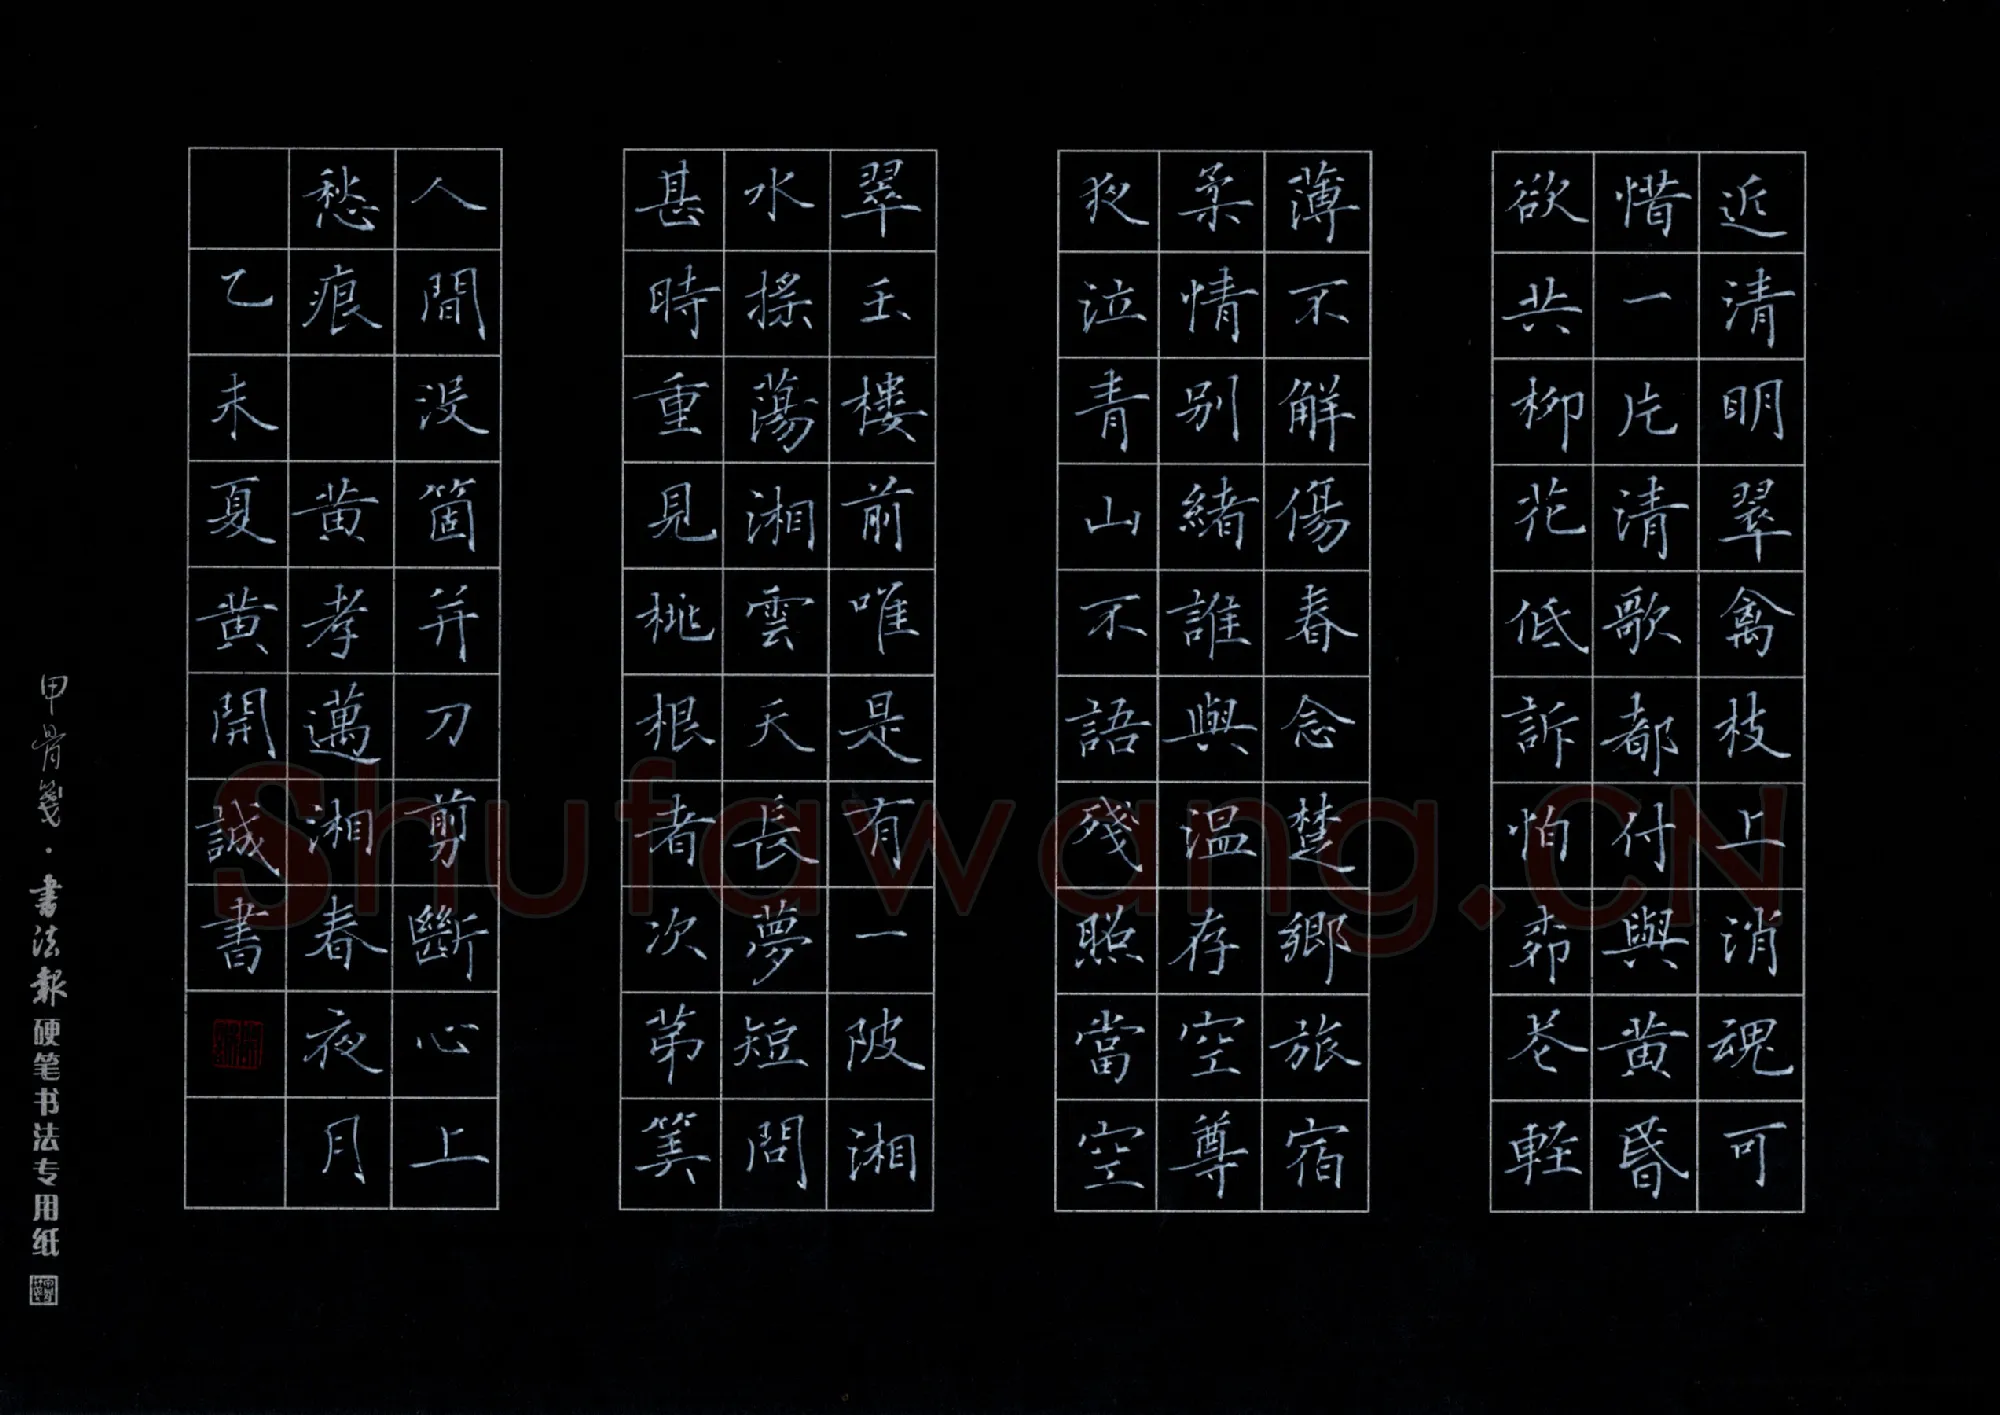 近清明翠禽枝上消魂可
惜一片清歌都付與黄昏
欲共柳花低訴怕柳花輕
薄不解傷春念楚鄉旅宿
柔情别緒誰與温存空尊
夜泣青山不語殘照當空
翠玉楼前唯是有一陂湘
水摇蕩湘雲天長夢短問
甚時重見桃根者次第筭
人間没箇并刀剪斷心上
愁痕 黄孝邁湘春夜月
乙未夏黄開誠書
甲骨笺·書法報硬笔书法专用纸
Shufawang.CN